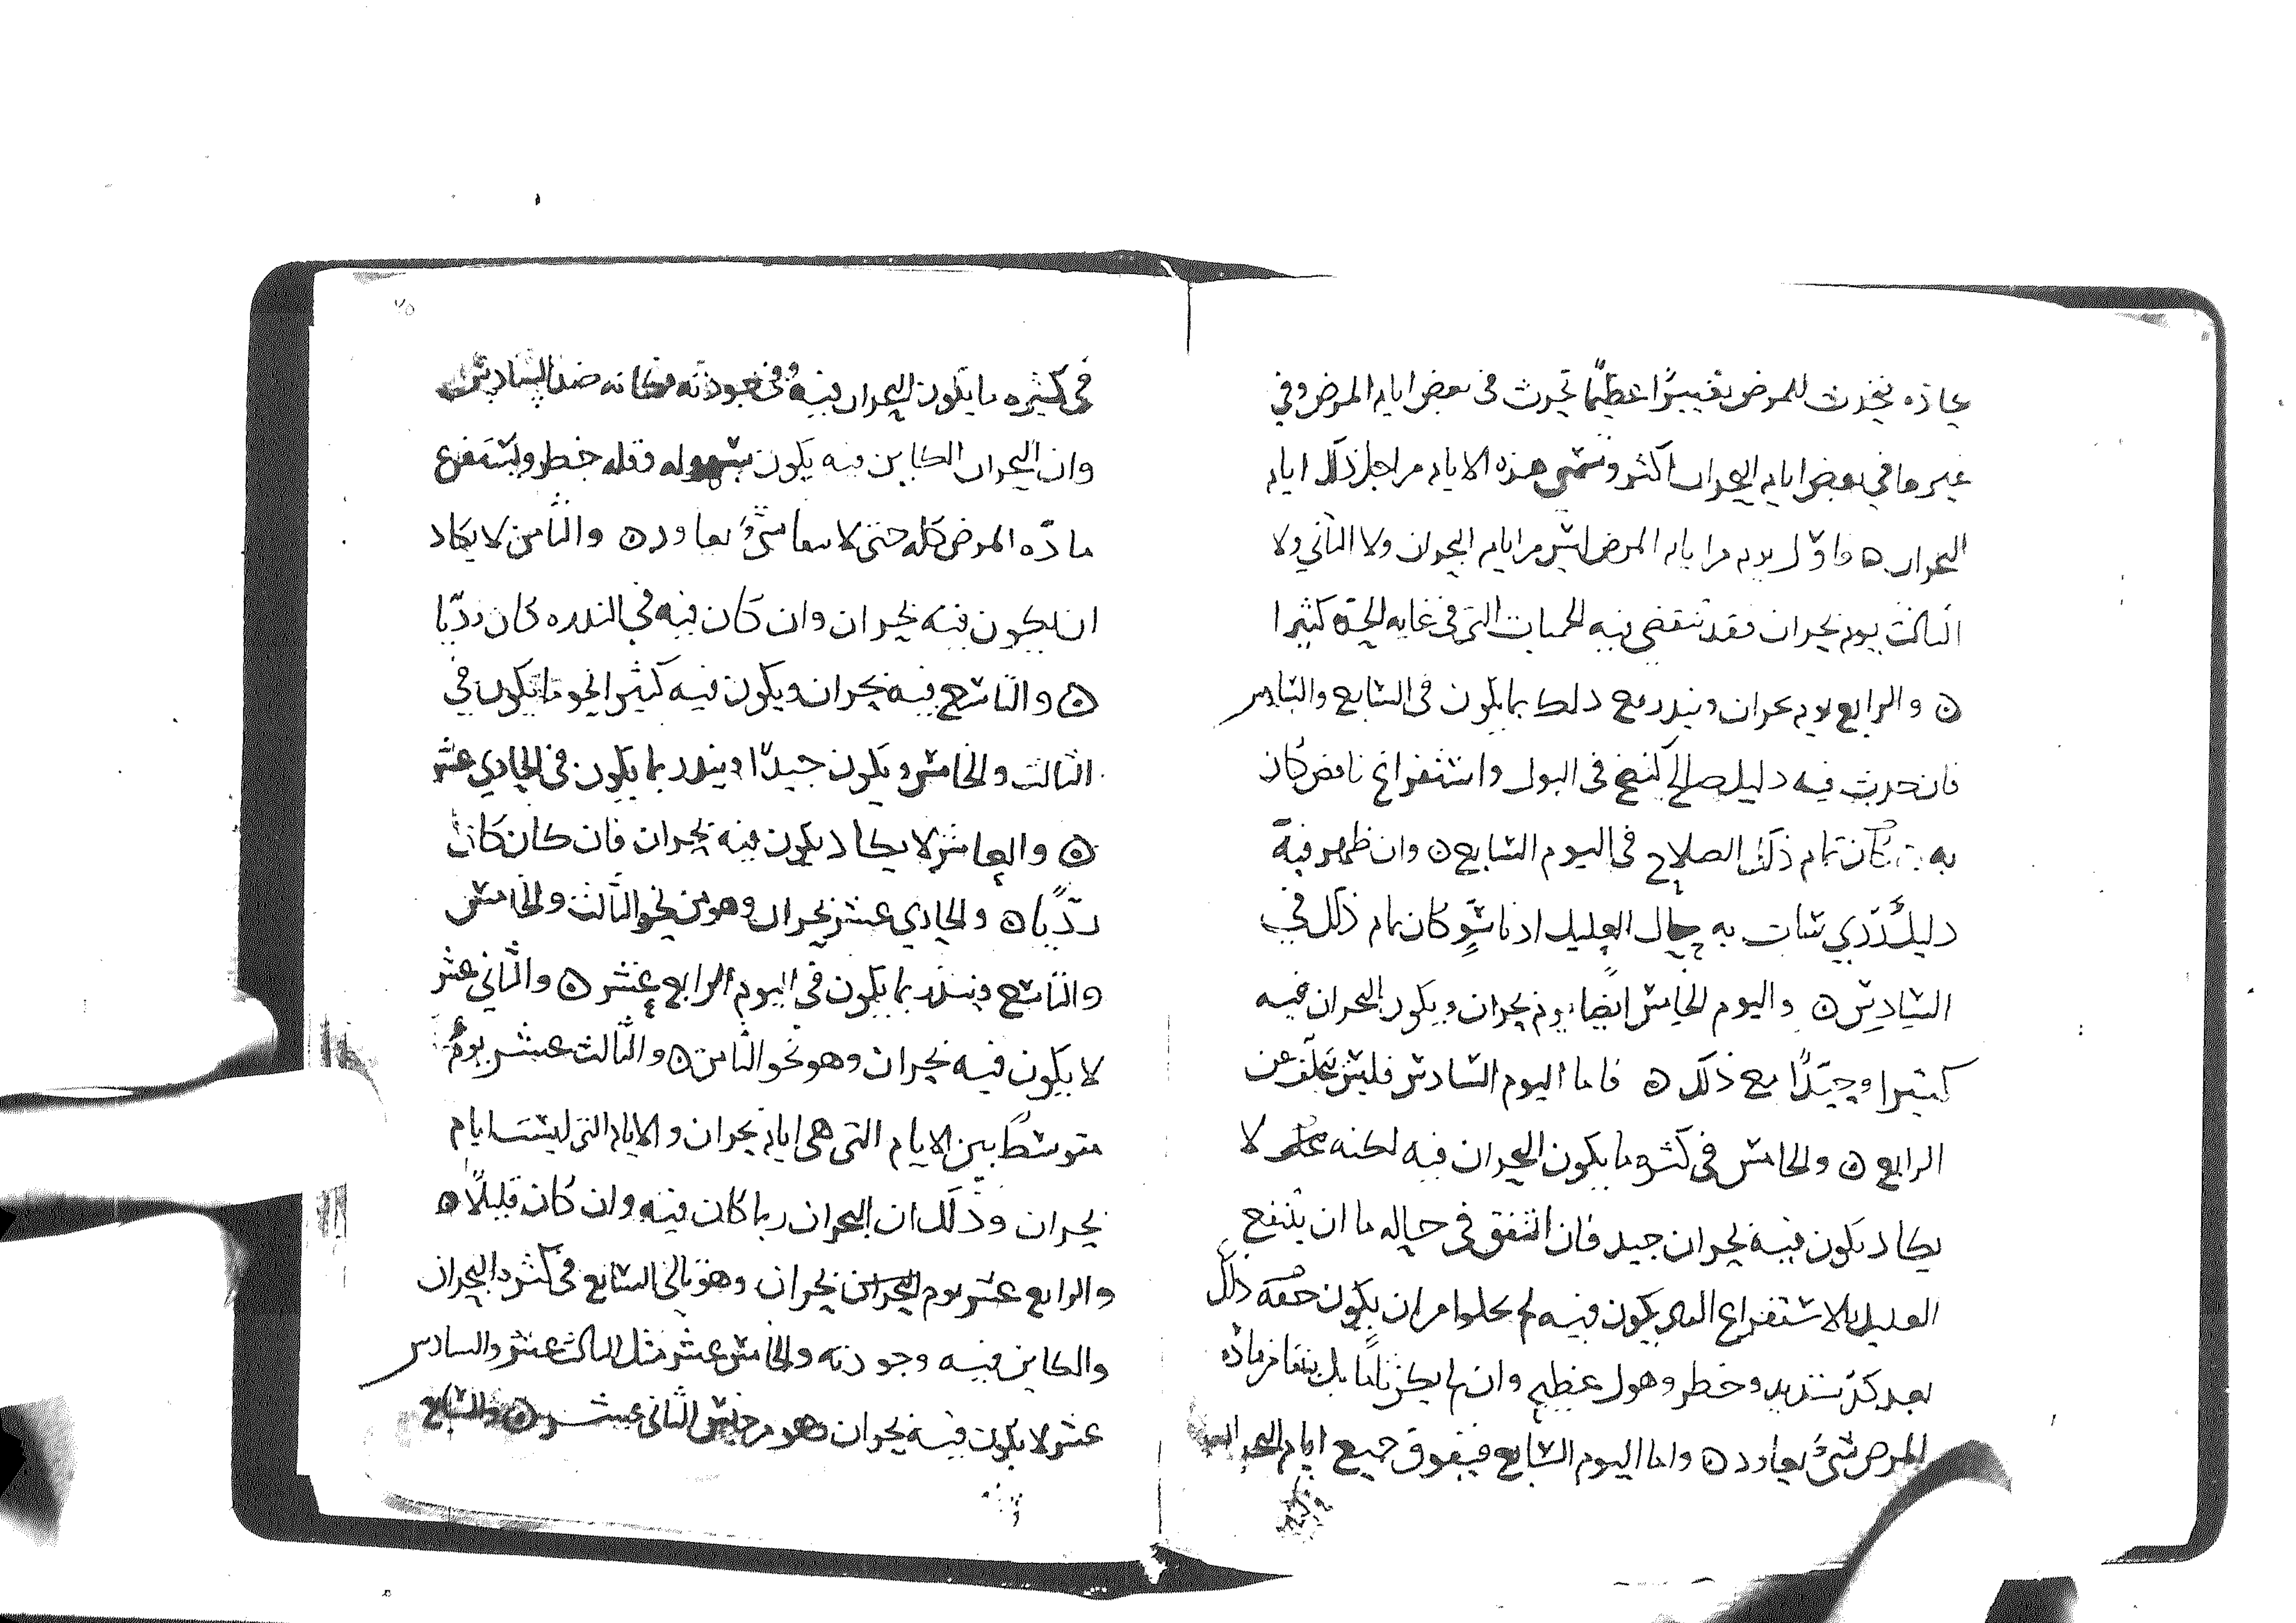 عاده فيحدث للمرض تغييرًا عظيمًا تحدث فى بعض ايام المرض وفي
غير ما في بعض ايام البحران اكثر وتسمى هذه الايام من اجل ذلك ايام
البحران ٥ فاوّل يوم من ايام المرض ليس من ايام البحران ولا الثاني ولا
الثالث يوم بحران فقد تنقضي فيه الحميات التي في غايه الحدة كثيرا
٥ والرابع يوم بحران وينذر مع ذلك بما يكون في السابع والسادس
فان حدث فيه دليل صالح كنضج في البول واستفراغ ناقص كان
به كان تمام ذلك الصلاح في اليوم السابع ٥ وان ظهر فيه
دليل ردّي سات به حال العليل ادنا سو كان تمام ذلك في
السادس ٥ واليوم الخامس ايضًا يوم بحران ويكون البحران فيه
كثيرا وجيّدًا مع ذلك ٥ فاما اليوم السادس فليس يتخلف عن
الرابع ٥ والخامس في كثرة ما يكون البحران فيه لكنه لا
يكاد يكون فيه بحران جيد فان اتفق في حاله ما ان ينتفع
العليل بالاستفراغ الذي يكون فيه لم يخلوا من ان يكون معه ذلك
بعد كدّ شديد وخطر وهول عظيم وان لم يكن تامًا بل يبقا من ماده
المرض شيءٌ يعاود ٥ واما اليوم السابع فيفوق جميع ايام البحران
٧٥
في كثره ما يكون البحران فيه وفي جودته فكانه ضد السادس
وان البحران الكاين فيه يكون بسهوله وقله خطر ويستفرغ
مادّه المرض كله حتى لا يبقا شيءٌ يعاود ٥ والثامن لا يكاد
ان يكون فيه بحران وان كان فيه في الندره كان ردّيا
٥ والتاسع فيه بحران ويكون فيه كثيرا نحو ما يكون في
الثالث والخامس ويكون جيدًا وينذر بما يكون في الحادي عشر
٥ والعاشر لا يكاد يكون فيه بحران فان كان كان
ردّيًا ٥ والحادي عشر بحران وهو من نحو الثالث والخامس
والتاسع وينذر بما يكون في اليوم الرابع عشر ٥ والثاني عشر
لا يكون فيه بحران وهو نحو الثامن ٥ والثالث عشر يومٌ
متوسطًا بين الايام التي هي ايام بحران والايام التي ليست ايام
بحران وذلك ان البحران ربما كان فيه وان كان قليلًا ٥
والرابع عشر يوم البحران بحران وهو تالي السابع في كثرة البحران
والكاين فيه وجودته والخامس عشر مثل الثالث عشر والسادس
عشر لا يكون فيه بحران وهو من جنس الثاني عشر ٥ والسابع